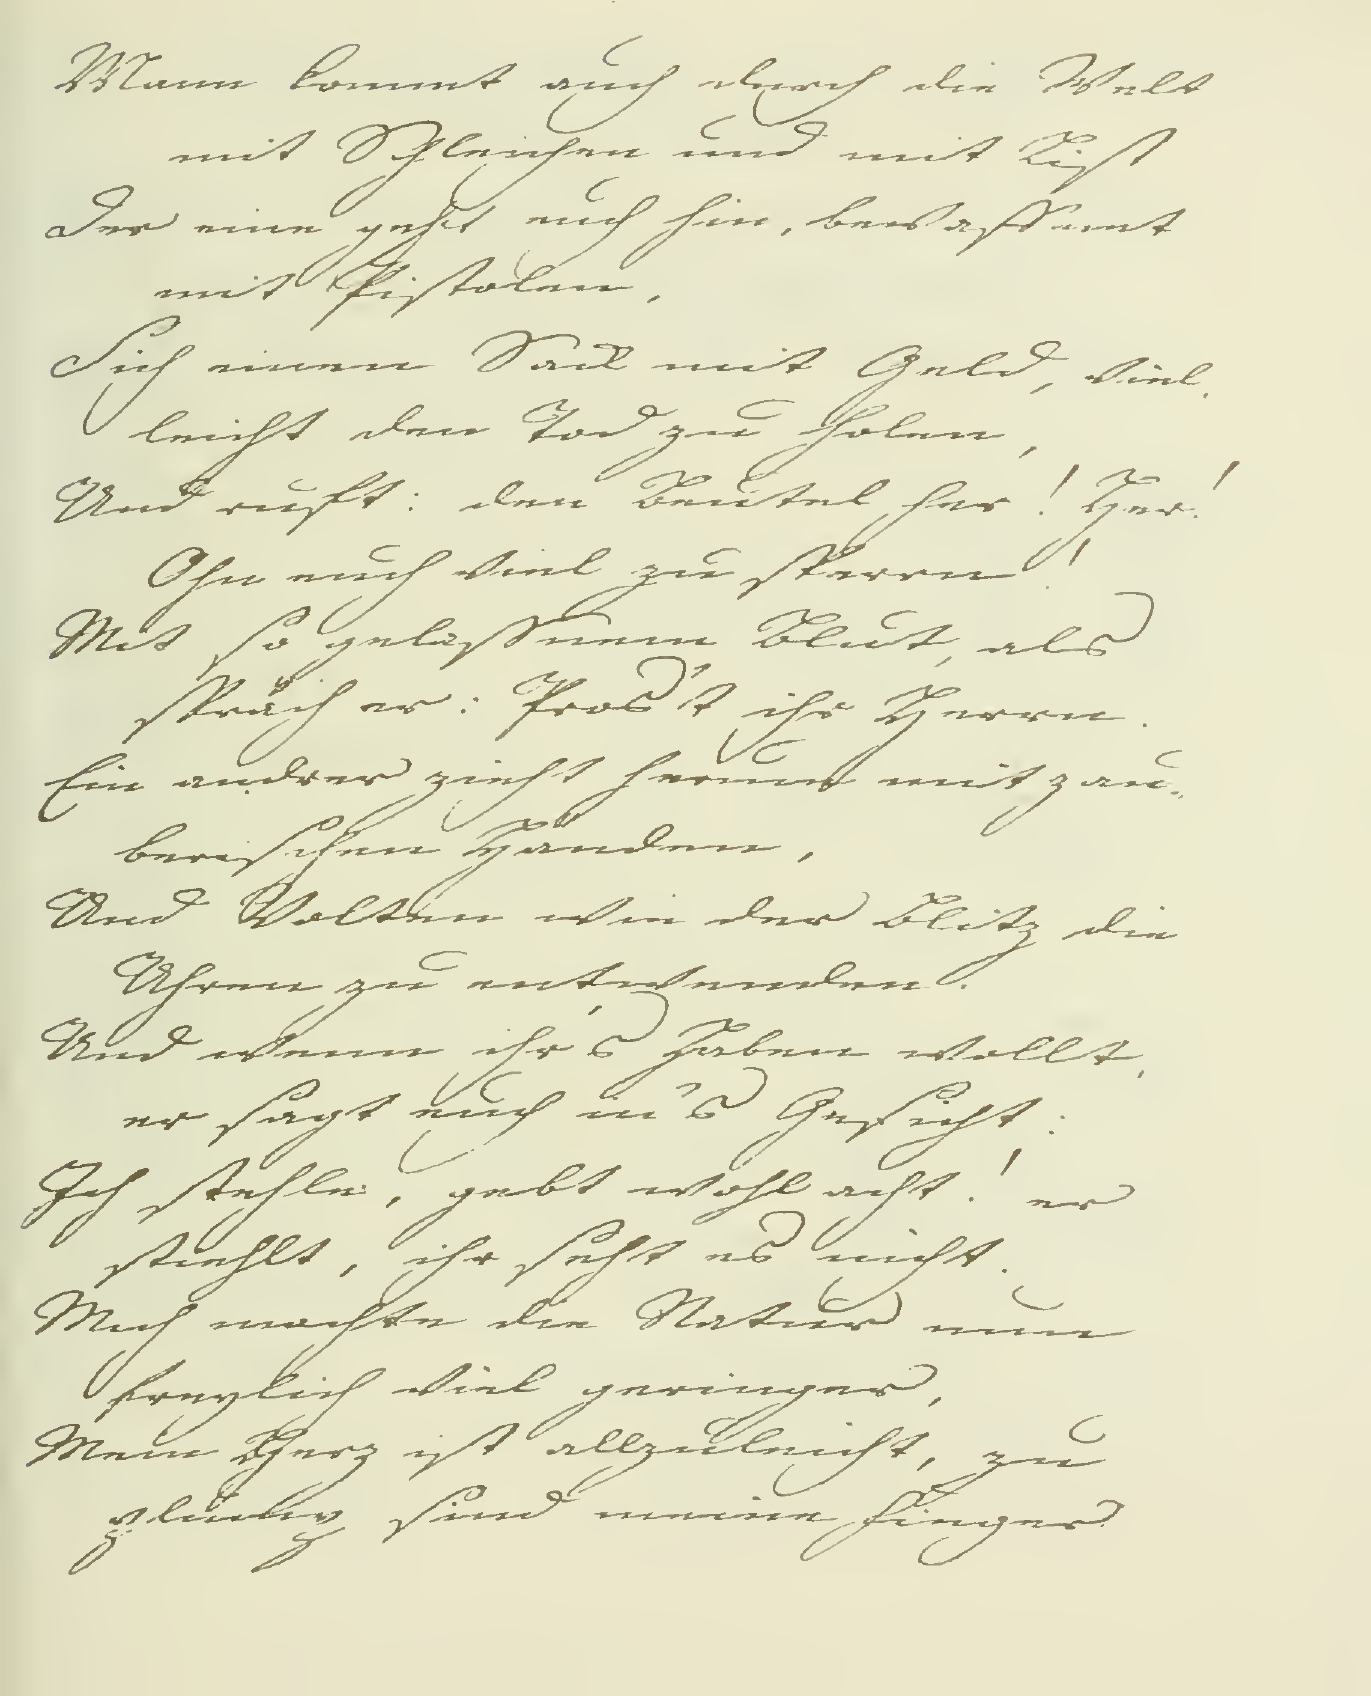 Mann kommt auch durch die Welt
mit Schleichen und mit List
Der eine geht euch hin, bewaffnet
mit Pistolen,
Sich einen Sack mit Geld, viel-
leicht den Tod zu holen,
Und ruft: den Beutel her! Her!
Ohn euch viel zu sperrn!
Mit so gelaßnem Blut, als
spräch er: Pros't ihr Herrn.
Ein andrer zieht herum mit zau-
berischen Händen,
Und Volten wie der Blitz die
Uhren zu entwenden.
Und wenn ihr's haben wollt,
er sagt euch in's Gesicht:
Ich stehle, gebt wohl acht! er
stiehlt, ihr seht es nicht.
Mich machte die Natur nun
freylich viel geringer,
Mein Herz ist allzuleicht, zu
sind meine Finger